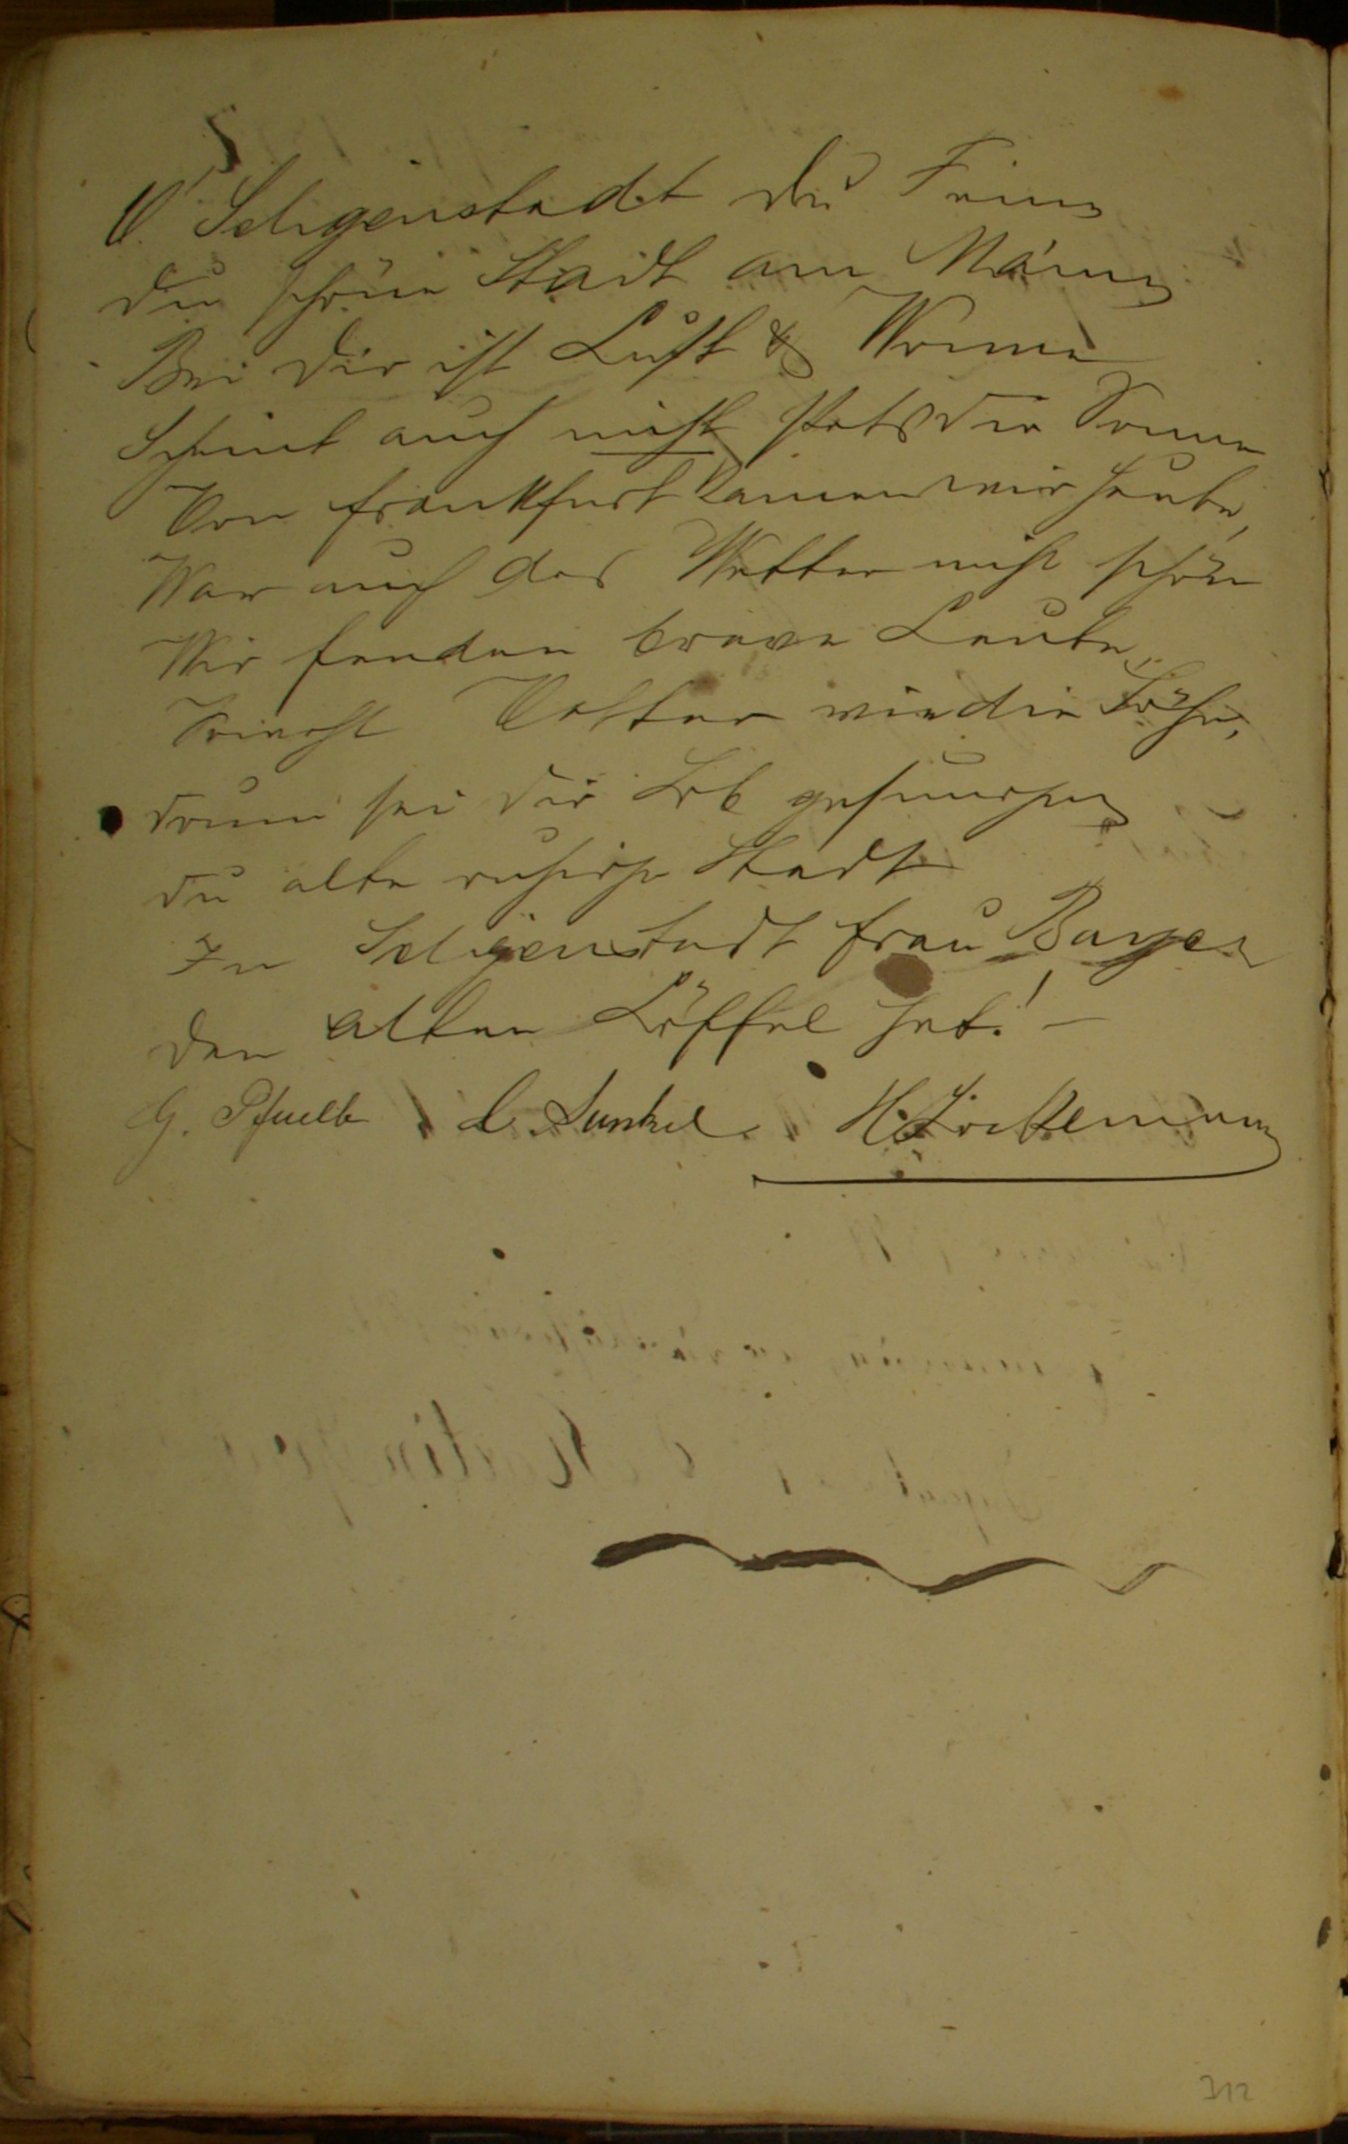 O Seligenstadt du Feine
du schöne Stadt am Maine
Bei dir ist Lust & Wonne
Scheint auch nicht stets die Sonne
Von Frankfurt kamen wir heute,
War auch das Wetter nicht schön
Wir fanden brave Leute,
Vatter wie die Söhn,
drum sei dir Lob gesungen
du alte ruhige Stadt
In Seligenstadt Frau Bayer
den alten Löffel hat! —
G. Pfuelb C. Kunkel H.
312